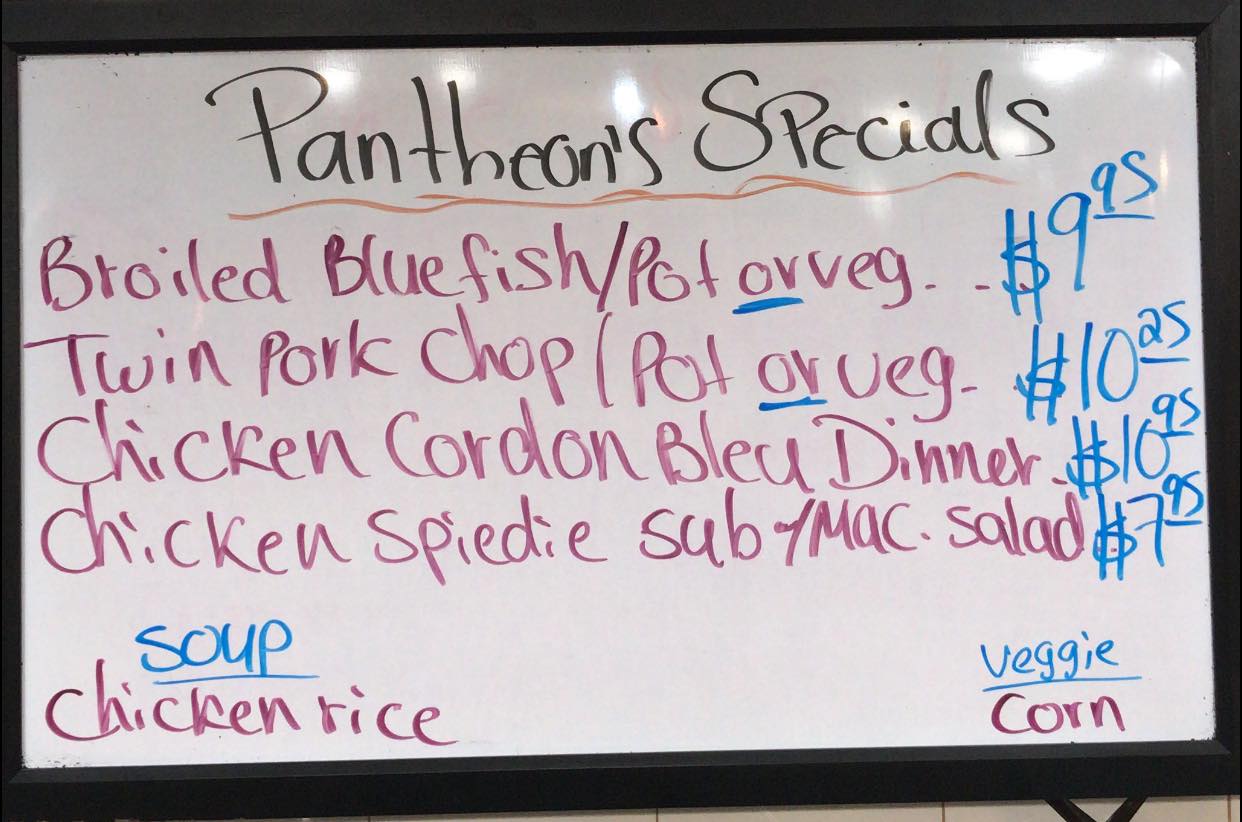 Pantheon's Specials
Broiled Bluefish/Pot or veg. . . $9.95
Twin Pork Chop/Pot or veg. . $10.25
Chicken Cordon Bleu Dinner . $10.95
Chicken Spiedie Sub w/Mac. Salad . $7.95
Soup
Chicken rice
Veggie
Corn